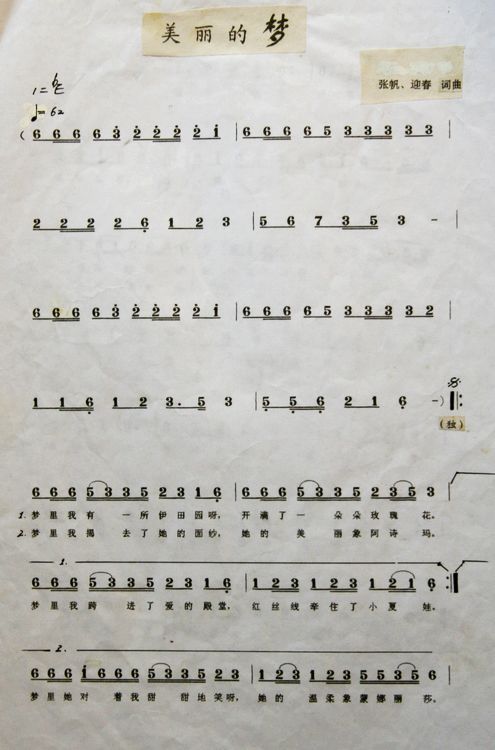 美丽的梦
张帆、迎春 词曲
1=♭E
♩=62
(6 6 6 6 3 2 2 2 2 1 | 6 6 6 6 5 3 3 3 3 3 |
2 2 2 2 6 1 2 3 | 5 6 7 3 5 3 - |
6 6 6 6 3 2 2 2 2 1 | 6 6 6 6 5 3 3 3 3 2 |
1 1 6 1 2 3. 5 3 | 5 5 6 2 1 6 -)
(独)
6 6 6 5 3 3 5 2 3 5 | 6 6 6 5 3 3 5 2 3 5 3
1. 梦里我有 一所伊田园呀, 开满了一 朵朵玫瑰 花。
2. 梦里我揭 去了她的面纱, 她的 美 丽象阿诗 玛。
1.
6 6 6 5 3 3 5 2 3 1 6 | 1 2 3 1 2 3 1 2 1 6
梦里我跨 进了爱的殿堂, 红丝线牵住了小夏 娃。
2.
6 6 6 1 6 6 6 5 5 3 5 2 3 | 1 2 3 2 3 5 5 5 5 3 6
梦里她对 着我甜 甜地笑呀, 她的 温柔象蒙娜丽 莎。